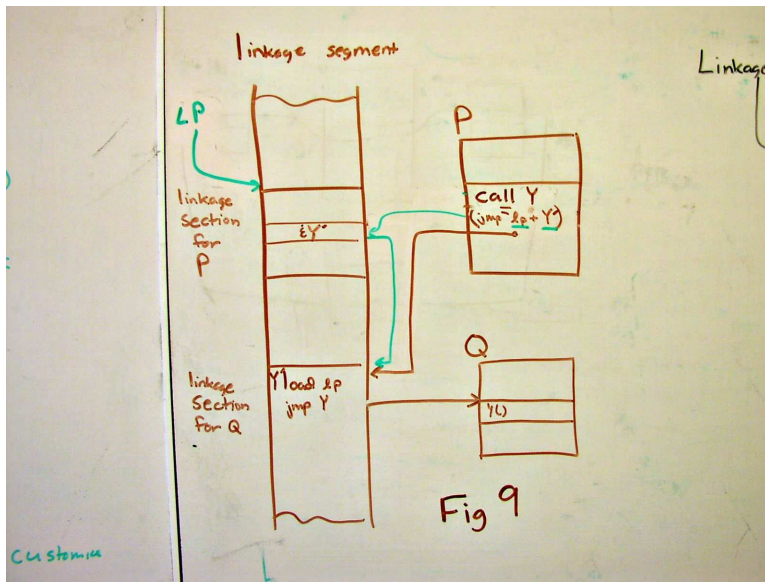 linkage segment
LP
linkage
section
for
P
&Y"
P
call Y
(jmp lp + Y")
linkage
section
for Q
Y' load lp
jmp Y
Q
Y()
Fig 9
Linkage
customiz